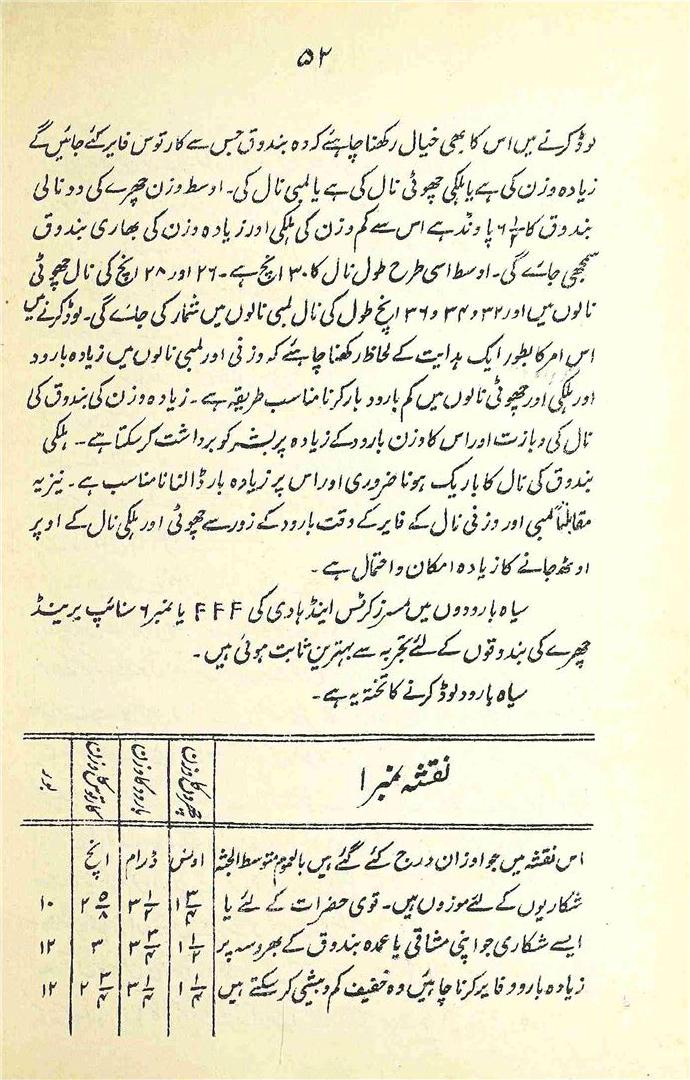 ۵۲
لوڈ کرنے میں اس کا بھی خیال رکھنا چاہئے کہ وہ بندوق جس سے کارتوس فایر کئے جائیں گے
زیادہ وزن کی ہے یا ہلکی چھوٹی نال کی ہے یا لمبی نال کی۔ اوسط وزن چھرے کی دونالی
بندوق کا ۶ ۱/۲ پاونڈ ہے اس سے کم وزن کی ہلکی اور زیادہ وزن کی بھاری بندوق
سمجھی جائے گی۔ اوسط اسی طرح طول نال کا ۳۰ انچ ہے۔ ۲۶ اور ۲۸ انچ کی نال چھوٹی
نالوں میں اور ۳۲ و ۳۴ و ۳۶ انچ طول کی نال لمبی نالوں میں شمار کی جائے گی۔ لوڈ کرنے میں
اس امر کا بطور ایک ہدایت کے لحاظ رکھنا چاہئے کہ وزنی اور لمبی نالوں میں زیادہ بارود
اور ہلکی اور چھوٹی نالوں میں کم بارود بار کرنا مناسب طریقہ ہے۔ زیادہ وزن کی بندوق کی
نال کی دبازت اور اس کا وزن بارود کے زیادہ پریشر کو برداشت کر سکتا ہے۔ ہلکی
بندوق کی نال کا باریک ہونا ضروری اور اس پر زیادہ بار ڈالنا نامناسب ہے۔ نیز یہ
مقابلتاً لمبی اور وزنی نال کے فایر کے وقت بارود کے زور سے چھوٹی اور ہلکی نال کے اوپر
اوٹھ جانے کا زیادہ امکان و احتمال ہے۔
سیاہ بارودوں میں مسرز کرٹس اینڈ ہاروی کی ۴۴۴ یا نمبر ۶ سنائپ برینڈ
چھرے کی بندوقوں کے لئے تجربہ سے بہترین ثابت ہوئی ہیں۔
سیاہ بارود لوڈ کرنے کا تختہ یہ ہے۔
نقشہ نمبر ۱ چھروں کا وزن بارود کا وزن کارتوس کا وزن بور
اس نقشہ میں جو اوزان درج کئے گئے ہیں بالعموم متوسط الجثہ اونس ڈرام انچ
شکاریوں کے لئے موزوں ہیں۔ قوی حضرات کے لئے یا ۱ ۳/۴ ۳ ۱/۲ ۲ ۵/۸ ۱۰
ایسے شکاری جو اپنی مشاقی یا عمدہ بندوق کے بھروسہ پر ۱ ۱/۲ ۳ ۳/۴ ۳ ۱۲
زیادہ بارود فایر کرنا چاہیں وہ خفیف کم و بیشی کر سکتے ہیں ۱ ۱/۴ ۳ ۱/۴ ۲ ۳/۴ ۱۲